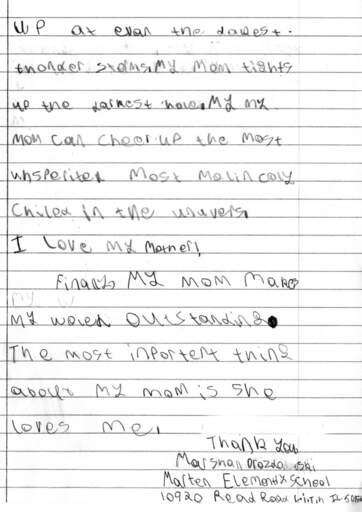 UP at even the lowest.
thonder stoms, My Mom lights
up the darkest hove, My my
mom can cheer up the most
unsperited Most Malincoly
Chiled in the univers
I love My Mother!
Finaly My mom Makes
My wored Outstanding
The most inportent thing
about My mom is she
loves me,
Thank you
Marshan
Marten Elementry School
10920 Read Road